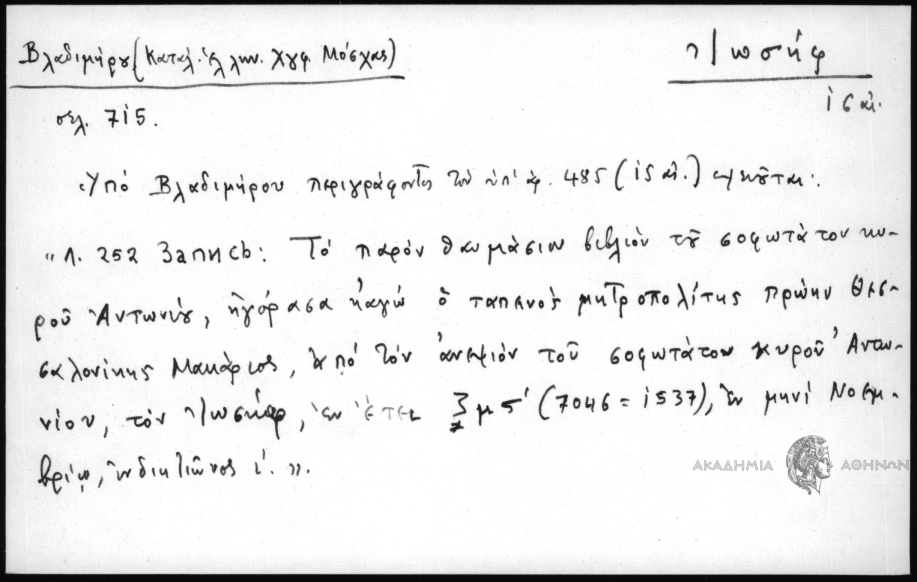 Βλαδιμήρου (Καταλ. Ἑλλην. Χγφ. Μόσχας)
Ἰωσήφ
ις αἰ.
σελ. 715.
Ὑπό Βλαδιμήρου περιγράφοντος τόν ὑπ' ἀρ. 485 (ις αἰ.)
"Λ. 252 Запись: Τό παρόν θαυμάσιον βιβλίον τοῦ σοφωτάτου κυ-
ροῦ Ἀντωνίου, ἠγόρασα κἀγώ ὁ ταπεινός μητροπολίτης πρώην Θεσ-
σαλονίκης Μακάριος, ἀπό τόν ἀνεψιόν τοῦ σοφωτάτου κυροῦ Ἀντω-
νίου, τόν Ἰωσήφ, ἐν ἔτει ͵ζμς´ (7046 = 1537), ἐν μηνί Νοεμ-
βρίῳ, ἰνδικτιῶνος ι´.".
ΑΚΑΔΗΜΙΑ ΑΘΗΝΩΝ